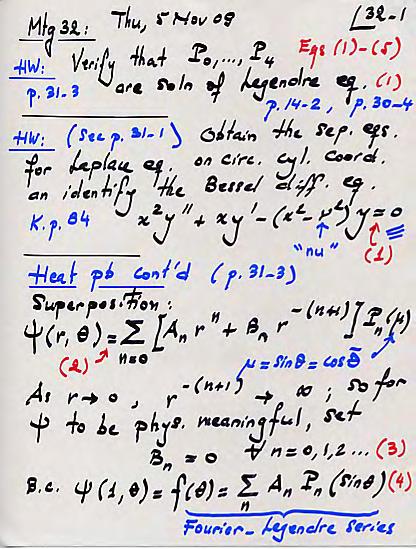 Mtg 32: Thu, 5 Nov 09 [32-1
HW: Verify that P₀,..., P₄ Eqs (1)-(5)
p. 31-3 are soln of Legendre eq. (1)
p.14-2, p.30-4
HW: (See p. 31-1) Obtain the sep. eqs.
for Laplace eq. on circ. cyl. coord.
an identify the Bessel diff. eq.
K.p. 84 x²y'' + xy' - (x² - ν²) y = 0
"nu" (1)
Heat pb cont'd (p. 31-3)
Superposition:
ψ(r, θ) = Σ_{n=0} [Aₙ rⁿ + Bₙ r^{-(n+1)}] Pₙ(μ)
(2) μ = sinθ = cosθ̄
As r → 0, r^{-(n+1)} → ∞; so for
ψ to be phys. meaningful, set
Bₙ = 0 ∀ n = 0,1,2... (3)
B.c. ψ(1, θ) = f(θ) = Σₙ Aₙ Pₙ(sinθ) (4)
Fourier-Legendre series